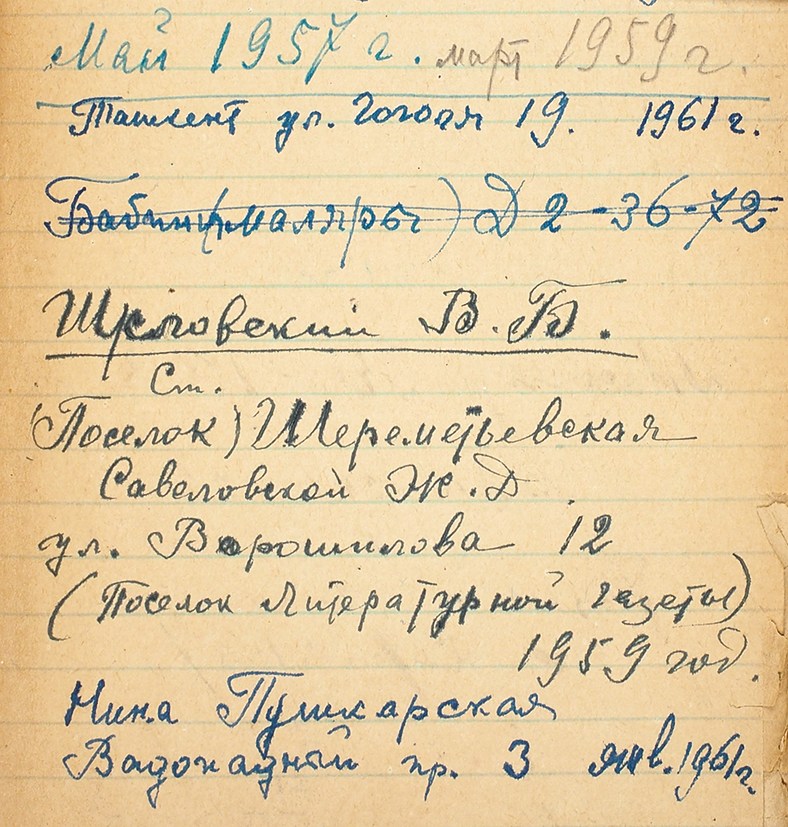 Май 1957 г. март 1959 г.
Ташкент ул. Гоголя 19. 1961 г.
Бабин (маляры) Д 2-36-72
Шкловский В.Б.
Ст.
(Поселок) Шереметьевская
Савеловской Ж.Д.
ул. Ворошилова 12
(Поселок Литературной газеты)
1959 год.
Нина Пушкарская
Вадопадный пр. 3 янв. 1961г.